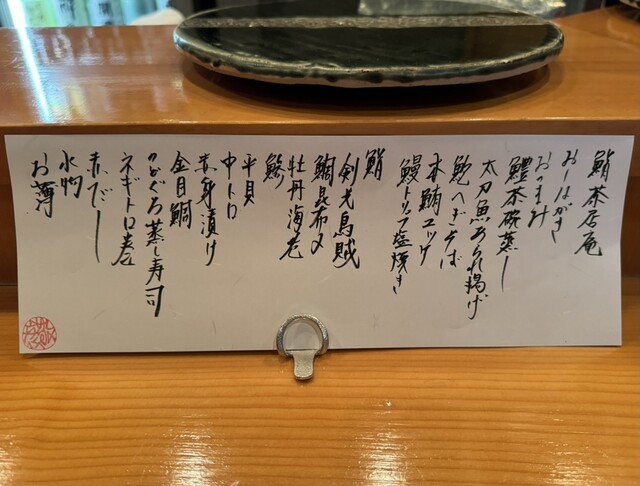 鮨茶居庵
おしながき
おつまみ
鱧茶碗蒸し
太刀魚あられ揚げ
鮑へぎそば
本鮪ユッケ
鰻トリュフ塩焼き
鮨
剣先烏賊
鯛昆布〆
牡丹海老
鯵
平貝
中トロ
赤身漬け
金目鯛
のどぐろ蒸し寿司
ネギトロ巻
赤だし
水物
お薄